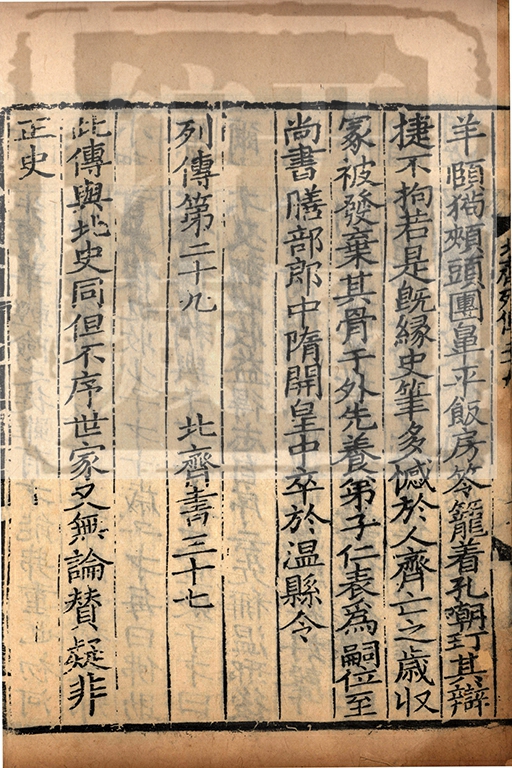 羊頤狗頰頭團鼻平飯房笭籠着孔嘲玎其辯
捷不拘若是旣縁史筆多憾於人齊亡之歳収
冢被發棄其骨于外先養弟子仁表爲嗣位至
尚書膳部郎中隋開皇中卒於温縣令
列傳第二十九 北齊書三十七
此傳與北史同但不序世家又無論賛疑非
正史